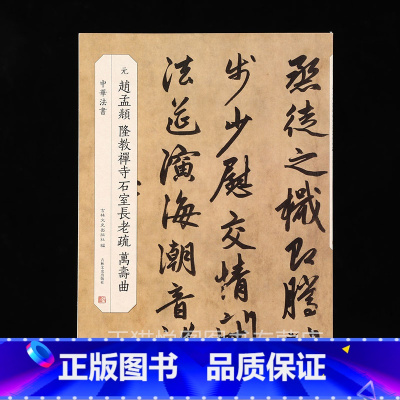 元 趙孟頫 隆教禪寺石室長老疏 萬壽曲
中華法書
吉林文史出版社 編
吉林文史出版社
烝徒之檝即騰
步少慰交情
法筵演海潮音
正版保障